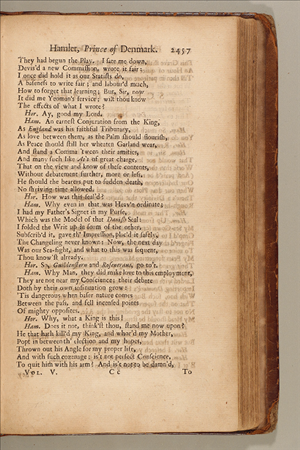 Hamlet, Prince of Denmark. 2457
They had begun the Play. I sate me down,
Devis'd a new Commission, wrote it fair:
I once did hold it as our Statists do,
A baseness to write fair; and labour'd much,
How to forget that learning; But, Sir, now
It did me Yeoman's service; wilt thou know
The effects of what I wrote?
Hor. Ay, good my Lord.
Ham. An earnest Conjuration from the King,
As England was his faithful Tributary,
As love between them, as the Palm should flourish,
As Peace should still her wheaten Garland wear,
And stand a Comma 'tween their amities,
And many such like As's of great charge,
That on the view and know of these contents,
Without debatement further, more or less,
He should the bearers put to sudden death,
No shriving time allowed.
Hor. How was this seal'd?
Ham. Why even in that was Heav'n ordinate;
I had my Father's Signet in my Purse,
Which was the Model of that Danish Seal:
I folded the Writ up in form of the other,
Subscrib'd it, gave th' Impression, plac'd it safely,
The Changeling never known: Now, the next day
Was our Sea-fight, and what to this was sequent,
Thou know'st already.
Hor. So, Guildenstern and Rosencraus, go to't.
Ham. Why Man, they did make love to this employment,
They are not near my Conscience; their defeate
Doth by their own insinuation grow:
'Tis dangerous when baser nature comes
Between the pass, and fell incensed points
Of mighty opposites.
Hor. Why, what a King is this!
Ham. Does it not, think'st thou, stand me now upon?
He that hath kill'd my King, and whor'd my Mother,
Popt in between th' election and my hopes,
Thrown out his Angle for my proper life,
And with such cozenage; is't not perfect Conscience,
To quit him with his arm? And is't not to be damn'd,
VOL. V. C c To